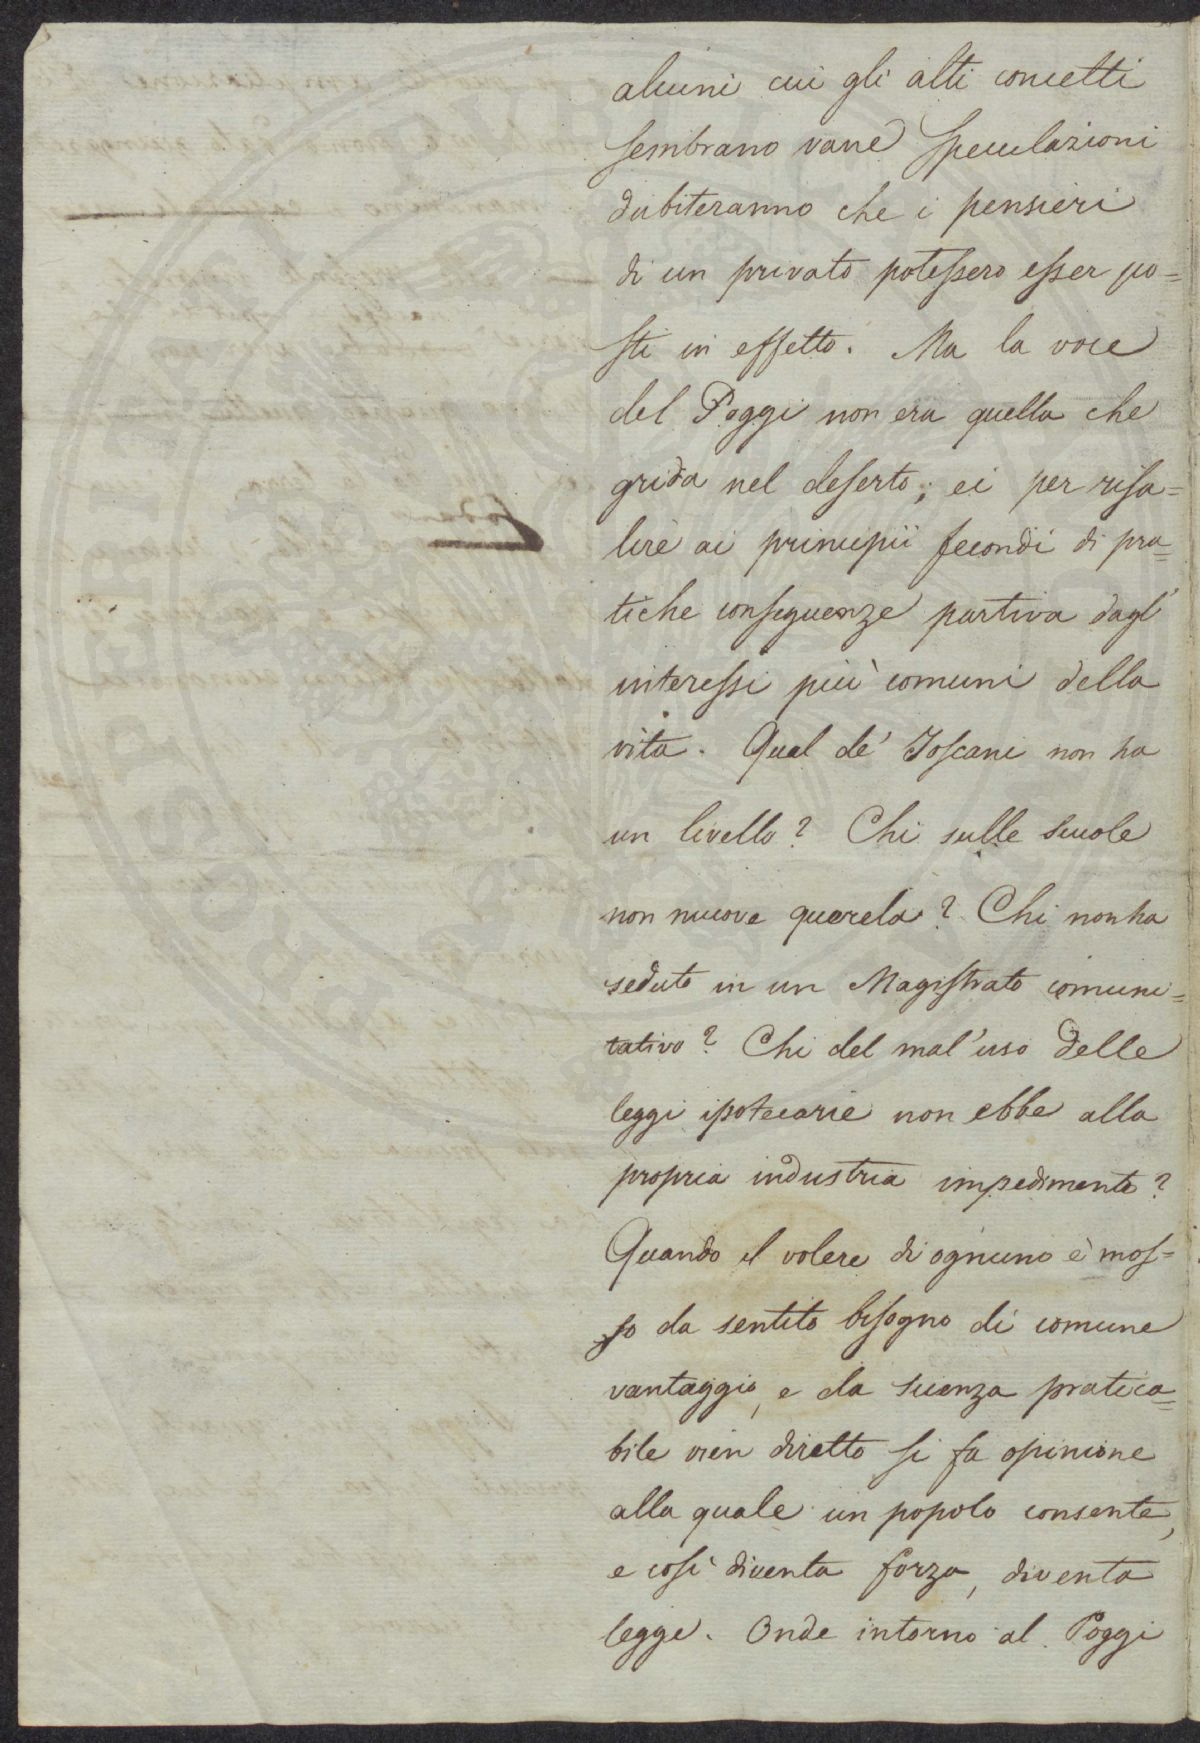 alcuni cui gli alti concetti
sembrano vane speculazioni
dubiteranno che i pensieri
di un privato potessero esser po=
sti in effetto. Ma la voce
del Poggi non era quella che
grida nel deserto; ei per risa=
lire ai principii fecondi di pra=
tiche conseguenze partiva dagl'
interessi più comuni della
vita. Qual de' Toscani non ha
un livello? Chi sulle scuole
non muove querela? Chi non ha
seduto in un Magistrato comuni=
tativo? Chi del mal'uso delle
leggi ipotecarie non ebbe alla
propria industria impedimento?
Quando il volere di ognuno è mos=
so da sentito bisogno di comune
vantaggio, e da scienza pratica=
bile vien diretto si fa opinione
alla quale un popolo consente,
e così diventa forza, diventa
legge. Onde intorno al Poggi